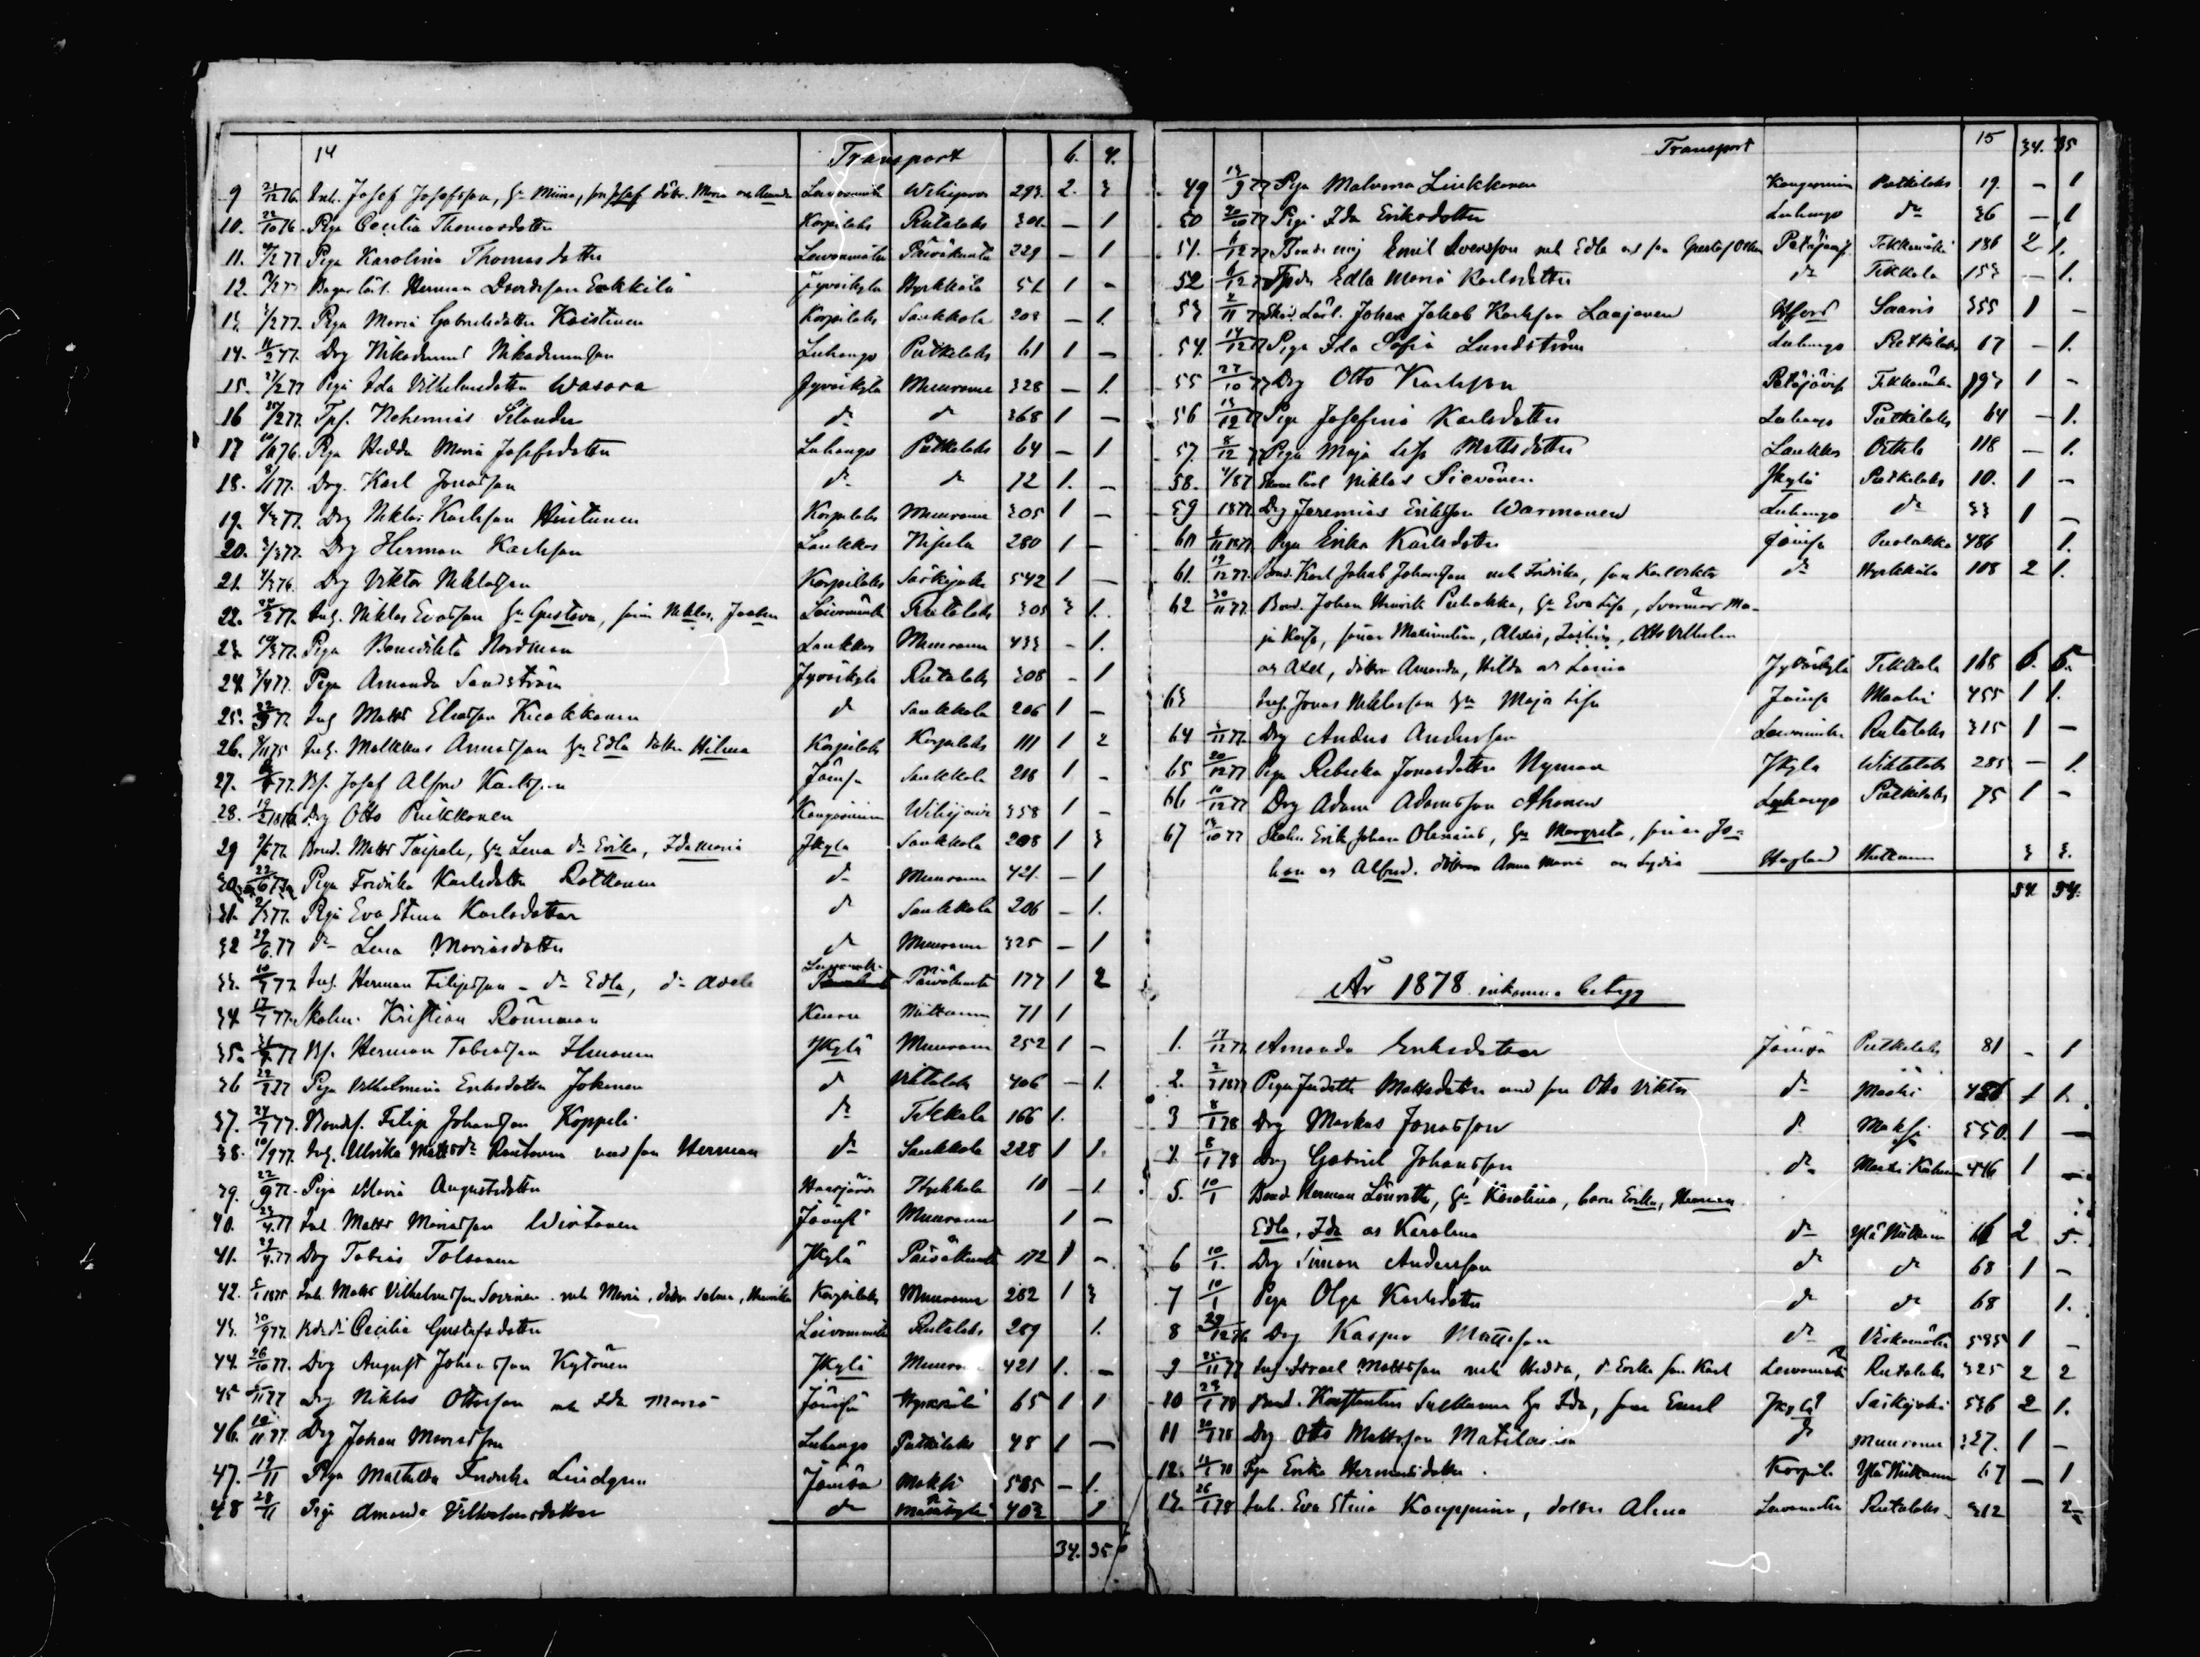 14 Transport 6. 4.
9 21/12 76. Inh. Josef Josefsson, Hu Miina, son Josef dötr. Maria och Amanda Leivonmäki Wihijärvi 293. 2. 3
10. 22/10 76. Piga Cecilia Thomasdotter Korpilaks Rutalaks 301. — 1
11. 4/2 77 Piga Karolina Thomasdotter Leivonmäki Päiväkunta 229 — 1
12. Herman Davidsson Eekkilä Jyväskyla Hyrkkälä 51 1 -
13. 1/2 77. Piga Maria Gabrielsdotter Koistinen Korpilaks Saukkola 208 — 1.
14. 11/2 77. Drg Nikodemus Nikodemusson Luhango Putkilaks 61 1 —
15. 27/2 77 Piga Ida Vilhelmsdotter Wasara Jyväskyla Muurame 328 — 1.
16 25/2 77. Tpf. Nehemias Silander do do 368 1 —
17 10/11 76. Piga Hedda Maria Josefsdotter Luhango Putkilaks 64 — 1
18. 8/1 77. Drg. Karl Jonasson do do 72 1. —
19. 4/3 77. Drg Niklas Karlsson Hintunen Korpilaks Muurame 305 1 —
20. 3/3 77. Drg Herman Karlsson Laukkas Nisula 280 1 —
21. 4/3 76. Drg Viktor Niklasson Korpilaks Särkijoki 542 1 —
22. 24/2 77. Inh. Niklas Evasson Hu Gustava, söner Niklas, Jaakko Leivonmäki Rutalaks 305 3 1.
23. 19/3 77. Piga Benedikta Nordman Laukkas Muurame 433 — 1.
24. 3/4 77. Piga Amanda Sandström Jyväskyla Rutalaks 308 — 1
25. 22/3 77 Inh Matts Eliasson Kuokkanen do Saukkola 206 1 —
26. 8/11 75 Inh. Malkkus Annasson Hu Edla dotter Hilma Korpilaks Korpilaks 111 1 2
27. 77. Bs. Josef Alfred Karlsson Jämsä Saukkola 218 1 -
28. 19/2 1876 Drg Otto Pukkonen Kangasniemi Wihijärvi 358 1 —
29 9/6 77. Bond. Matts Taipale, Hu Lena dr Erika, Ida Maria Jkyla Saukkola 208 1 3
30. 23/6 77. Piga Fredrika Karlsdotter Ratkonen do Muurame 421. — 1
31. 2/5 77. Piga Eva Stina Karlsdotter do Saukkola 206 — 1.
32 29/6 77 do Lena Mariasdotter do Muurame 325 — 1
33. 10/7 77 Inh. Herman Filipsson - dr Edla, dr Adele Leivonmäki Päiväkunta 177 1 2
34. 17/7 77. Skolm. Kristian Rönnman Keuru Nütkanen 71 1
35. 77 Bs. Herman Tobiasson Ilmonen Jkylä Muurame 252 1 —
36 29/7 77 Piga Vilhelmina Eriksdotter Jokinen do Vihtalaks 406 — 1.
37. 24/7 77. Bondes. Filip Johansson Koppeli do Tikkala 166 1.
38. 10/9 77. Inh. Ulrika Mattsdr Rautanen med son Herman do Saukkola 228 1 1.
39. 22/9 77. Piga Maria Augustsdotter Haarjärvi Hyrkkala 11 — 1.
40. 23/4 77 Inh Matts Mariasson Wirtanen Jämsä Muurame 1 —
41. 29/4 77 Drg Tobias Tolsanen Jkylä Päiväkunta 172 1 —
42. 5/1 1875 Inh. Matts Vilhelmsson Savinen. och Maria, dötr Selma, Henrika Korpilaks Muurame 282 1 3
43. 30/9 77. Cecilia Gustafsdotter Leivonmäki Rutalaks 289 1.
44. 26/10 77. Drg August Johansson Kytönen Jkylä Muurame 421 1. —
45 11 77 Drg Niklas Ottosson och Ida Maria Jämsä Hyrkkälä 65 1 1
46. 10/11 77. Drg Johan Mariasson Luhango Putkilaks 48 1 —
47. 19/11 Piga Mathilda Fredrika Lindgren Jämsä Makki 585 — 1.
48 28/11 Piga Amanda Vilhelmsdotter do 403 1
34. 35
Transport 15 34. 35
49 14/9 77 Piga Malvina Liukkonen Kangasniemi Putkilaks 19. — 1
50 30/10 77 Piga Ida Eriksdotter Luhango do 36 — 1
51. 6/12 77 Bonde måg Emil Iversson och Edla och son Gustaf Oskar Petäjävesi Tikkamäki 186 2 1.
52 6/12 77 Edla Maria Karlsdotter do Tikkala 153 — 1.
53 2/11 77 Skrädd. Lärl. Johan Jakob Karlsson Laajanen Hfors Saaris 355 1 —
54. 14/12 77 Piga Ida Sofia Lundström Luhango Putkilaks 17 — 1.
55 27/10 77 Drg Otto Karlsson Petäjävesi 193 1 —
56 13/12 77 Piga Josefina Karlsdotter Luhango Putkilaks 64 — 1.
57. 8/12 77 Piga Maja Lisa Mattsdotter Laukkas Oittila 118 — 1.
58. Niklas Sievänen Jkylä Putkilaks 10. 1 —
59 1877 Drg Jeremias Eriksson Warmanen Luhango do 33 1 —
60 6/11 1877 Piga Erika Karlsdotter Jämsä Puolakka 486 1.
61. 19/12 77. Bond. Karl Jakob Johansson och Fredrika, son Karl Viktor do Hyrkkälä 108 2 1.
62 30/11 77. Bond. Johan Henrik Puhakka, Hu Eva Lisa, Svärmor Ma-
ja Kaisa, söner Maximilian, Alexis, Otto Vilhelm
och Axel, dötrar Amanda, Hilda och Lovisa Jyväskylä Tikkala 168 6. 5.
63 Inh. Jonas Niklasson Hu Maja Lisa Jämsä Maakki 455 1 1.
64 11 77. Drg Anders Andersson Leivonmäki Rutalaks 315 1 —
65 20/12 77 Piga Rebecka Jonasdotter Nyman Jkyla Wihtalaks 285 — 1.
66 10/12 77 Drg Adam Adamsson Ahonen Luhango Putkilaks 75 1 —
67 14/10 77 Skolm. Erik Johan Olenius, Hu Margreta, söner Jo-
han och Alfred. dötrar Anna Maria och Lydia Hogland Nutkanen 3 3.
54. 54.
År 1878 inkomna betyg
1. 17/12 77. Amanda Eriksdotter Jämsä Putkilaks 81 — 1
2. 2/7 1877 Piga Judith Mattsdotter med son Otto Viktor do Maaki 486 1 1.
3 8/1 78 Drg Markus Jonasson do Makki 550. 1 —
4. 8/1 78 Drg Gabriel Johansson do 416 1 —
5. 10/1 Bond. Herman Lönroth, Hu Karolina, barn Erika, Herman
Edla, Ida och Karolina do Ylä Nutkanen 16 2 5.
6 10/1. Drg Simon Andersson do do 68 1 —
7 10/1 Piga Olga Karlsdotter do do 68 1.
8 29/12 76 Drg Kasper Mattsson do 595 1 —
9 25/11 77 Inh Israel Mattsson och Hedda, d Erika son Karl Leivonmäki Rutalaks 325 2 2
10 29/1 78 Bond. Konstantin Sulkanen Hu Ida, son Emil Jkylä Särkijoki 536 2 1.
11 30/1 78 Drg Otto Mattsson Matilainen do Muurame 327. 1 —
12. 14/1 78 Piga Erika Hermansdotter. Korpil. Ylä Nutkanen 67 — 1
13. 26/1 78 Inh. Eva Stina Kauppinen, dotter Alma Leivonmäki Rutalaks 312 2